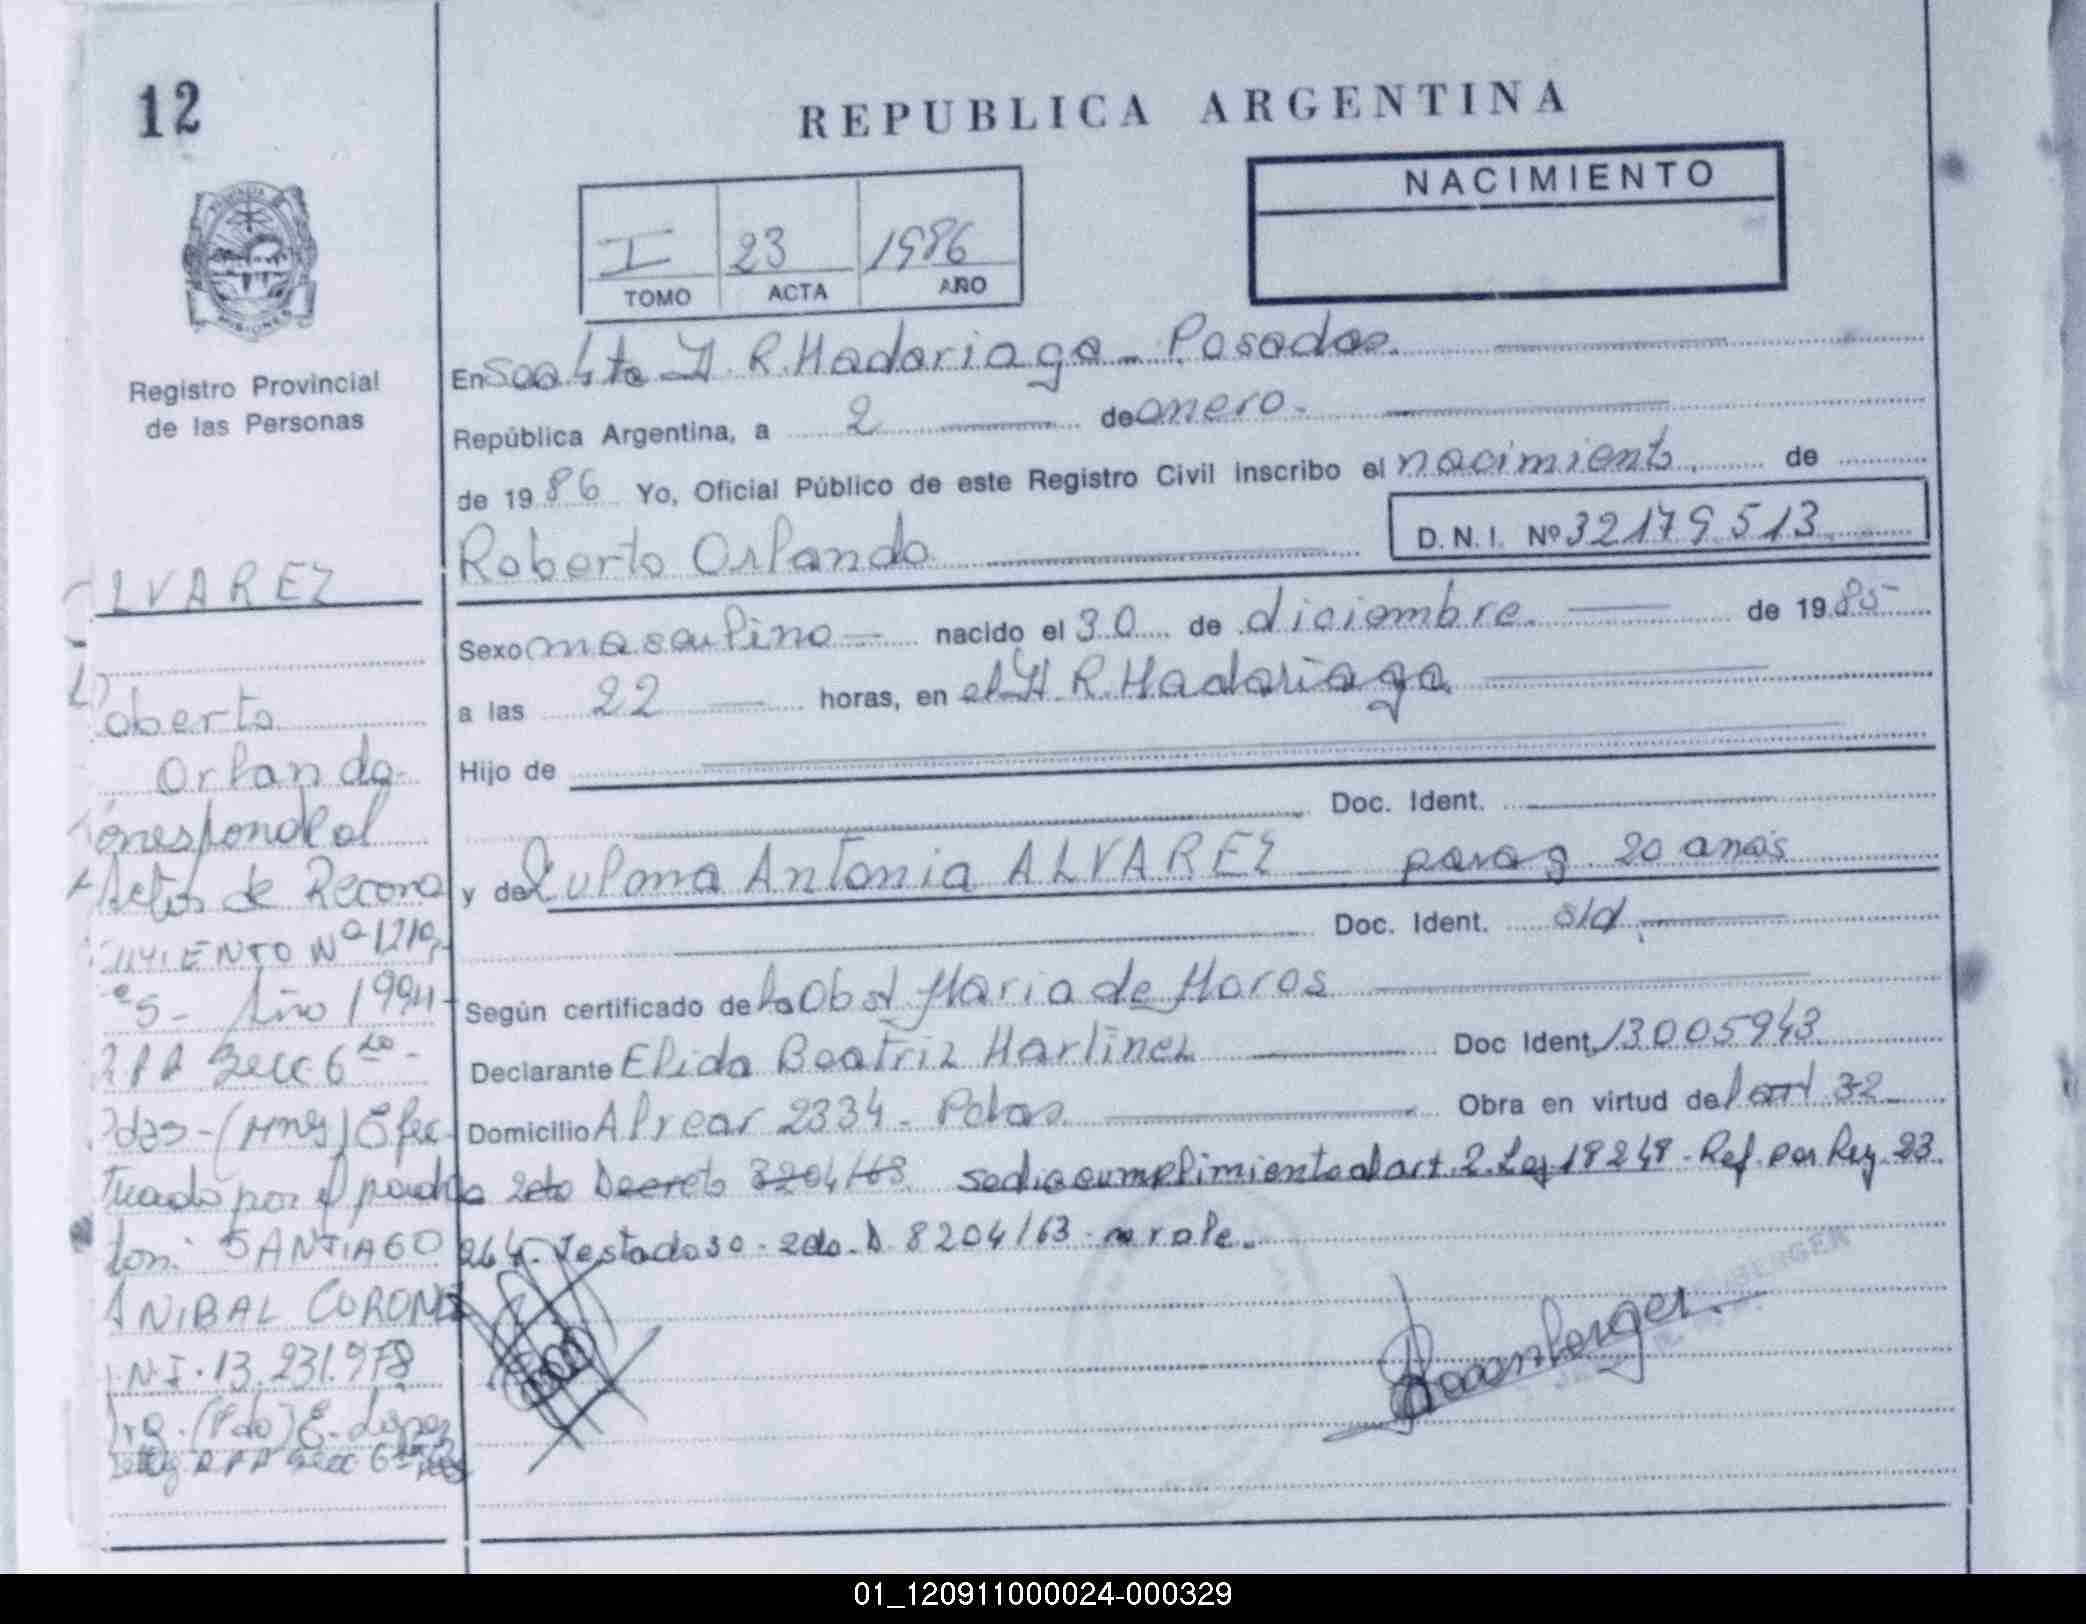 12
REPUBLICA ARGENTINA
NACIMIENTO
I 23 1986
TOMO ACTA AÑO
Registro Provincial
de las Personas
En H. R. Madariaga - Posadas.
República Argentina, a 2 de enero.
de 1986 Yo, Oficial Público de este Registro Civil inscribo el nacimiento de
Roberto Orlando D. N. I. Nº 32179513
Sexo masculino nacido el 30 de diciembre. de 1985
a las 22 horas, en el H R. Madariaga
Hijo de
Doc. Ident.
y de Zulma Antonia ALVAREZ parag 20 anos
Doc. Ident. s/d
Según certificado de la Obst Maria de Moros
Declarante Elida Beatriz Martinez Doc Ident. 13005943
Domicilio Alvear 2334 - Pdas Obra en virtud del art 32
2do Decreto 8204/63 sedio cumplimiento al art. 2. Ley 18248. Ref. por Rey. 23
264. Testadoso. 2do. D 8204/63 no vale.
LVAREZ
oberto
Orlando
orresponde al
Actos de Recono
IMIENTO Nº 1210
Año 1994
Secc 6
das - (Mnes) Efec
tuado por el padre
SANTIAGO
ANIBAL CORONE
N.I. 13.231.978
(Pdo) E. Lopez
Secc 6
Rosenberger
01_120911000024-000329